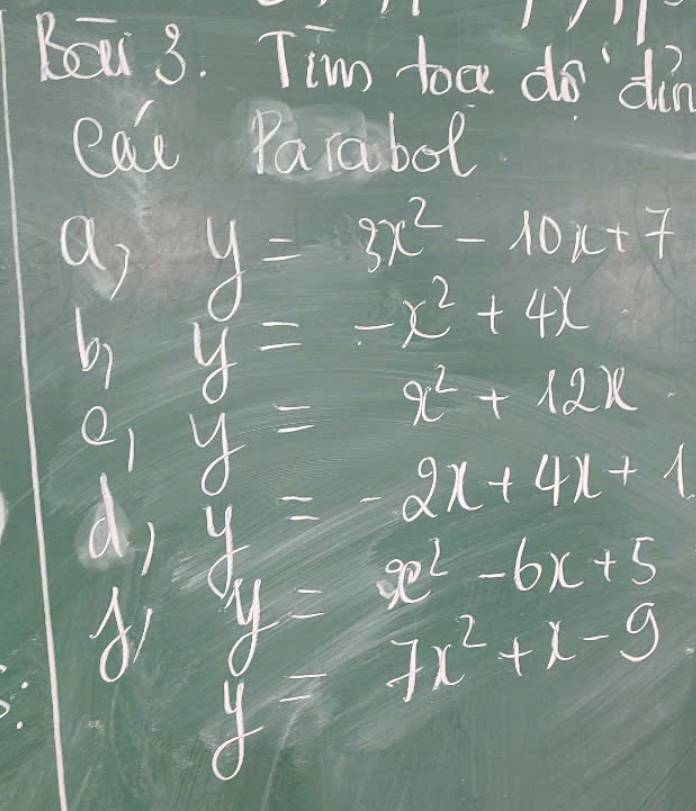 Bài 3. Tìm toạ độ đỉn
Các Parabol
a, y = 3x² - 10x + 7
b, y = -x² + 4x
c, y = x² + 12x
d, y = - 2x + 4x + 1
y = x² - 6x + 5
y = 7x² + x - 9